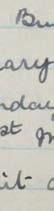 Bu
ary
nday
st M
it a